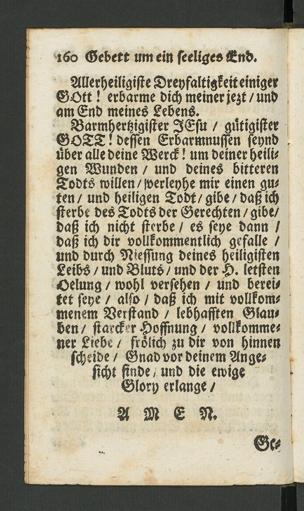 160 Gebett um ein seeliges End.
Allerheiligiste Dreyfaltigkeit einiger
GOtt! erbarme dich meiner jezt / und
am End meines Lebens.
Barmhertzigister JEsu / gütigister
GOTT! dessen Erbarmnussen seynd
über alle deine Werck! um deiner heili-
gen Wunden / und deines bitteren
Todts willen / verleyhe mir einen gu-
ten / und heiligen Todt / gibe / daß ich
sterbe des Todts der Gerechten / gibe /
daß ich nicht sterbe / es seye dann /
daß ich dir vollkommentlich gefalle /
und durch Niessung deines heiligisten
Leibs / und Bluts / und der H. letsten
Oelung / wohl versehen / und berei-
tet seye / also / daß ich mit vollkom-
menem Verstand / lebhafften Glau-
ben / starcker Hoffnung / vollkomme-
ner Liebe / frölich zu dir von hinnen
scheide / Gnad vor deinem Ange-
sicht finde / und die ewige
Glory erlange /
A M E N.
Ge-